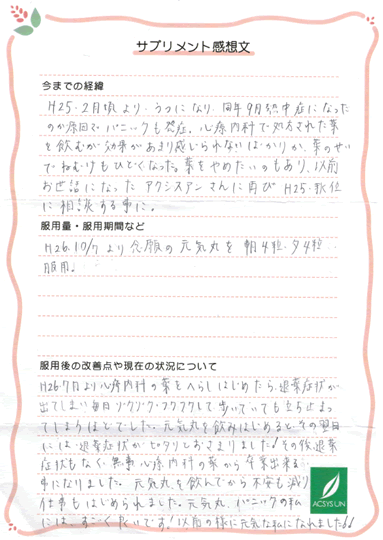 サプリメント感想文
今までの経緯
H25.2月頃より、うつになり、同年9月熱中症になった
のが原因で、パニックも発症。心療内科で処方された薬
を飲むが効果があまり感じられないばかりか、薬のせい
でねむけもひどくなった。薬をやめたいのもあり、以前
お世話になったアクシスアンさんに再びH25.秋位
に相談する事に。
服用量・服用期間など
H26.10/7より念願の元気丸を朝4粒.夕4粒..
服用♩
服用後の改善点や現在の状況について
H26.7月より心療内科の薬をへらしはじめたら、退薬症状が
出てしまい毎日ソクソク・フワフワして歩いていても立ち止まっ
てしまうほどでした。元気丸を飲みはじめると、その翌日
には退薬症状がピタリとおさまりました!その後、退薬
症状もなく無事心療内科の薬から卒業出来る
事になりました。元気丸を飲んでから不安も減り
仕事もはじめられました。元気丸、パニックの私
にはすごく良いです!以前の様に元気な私になれました!!
ACSYS UN